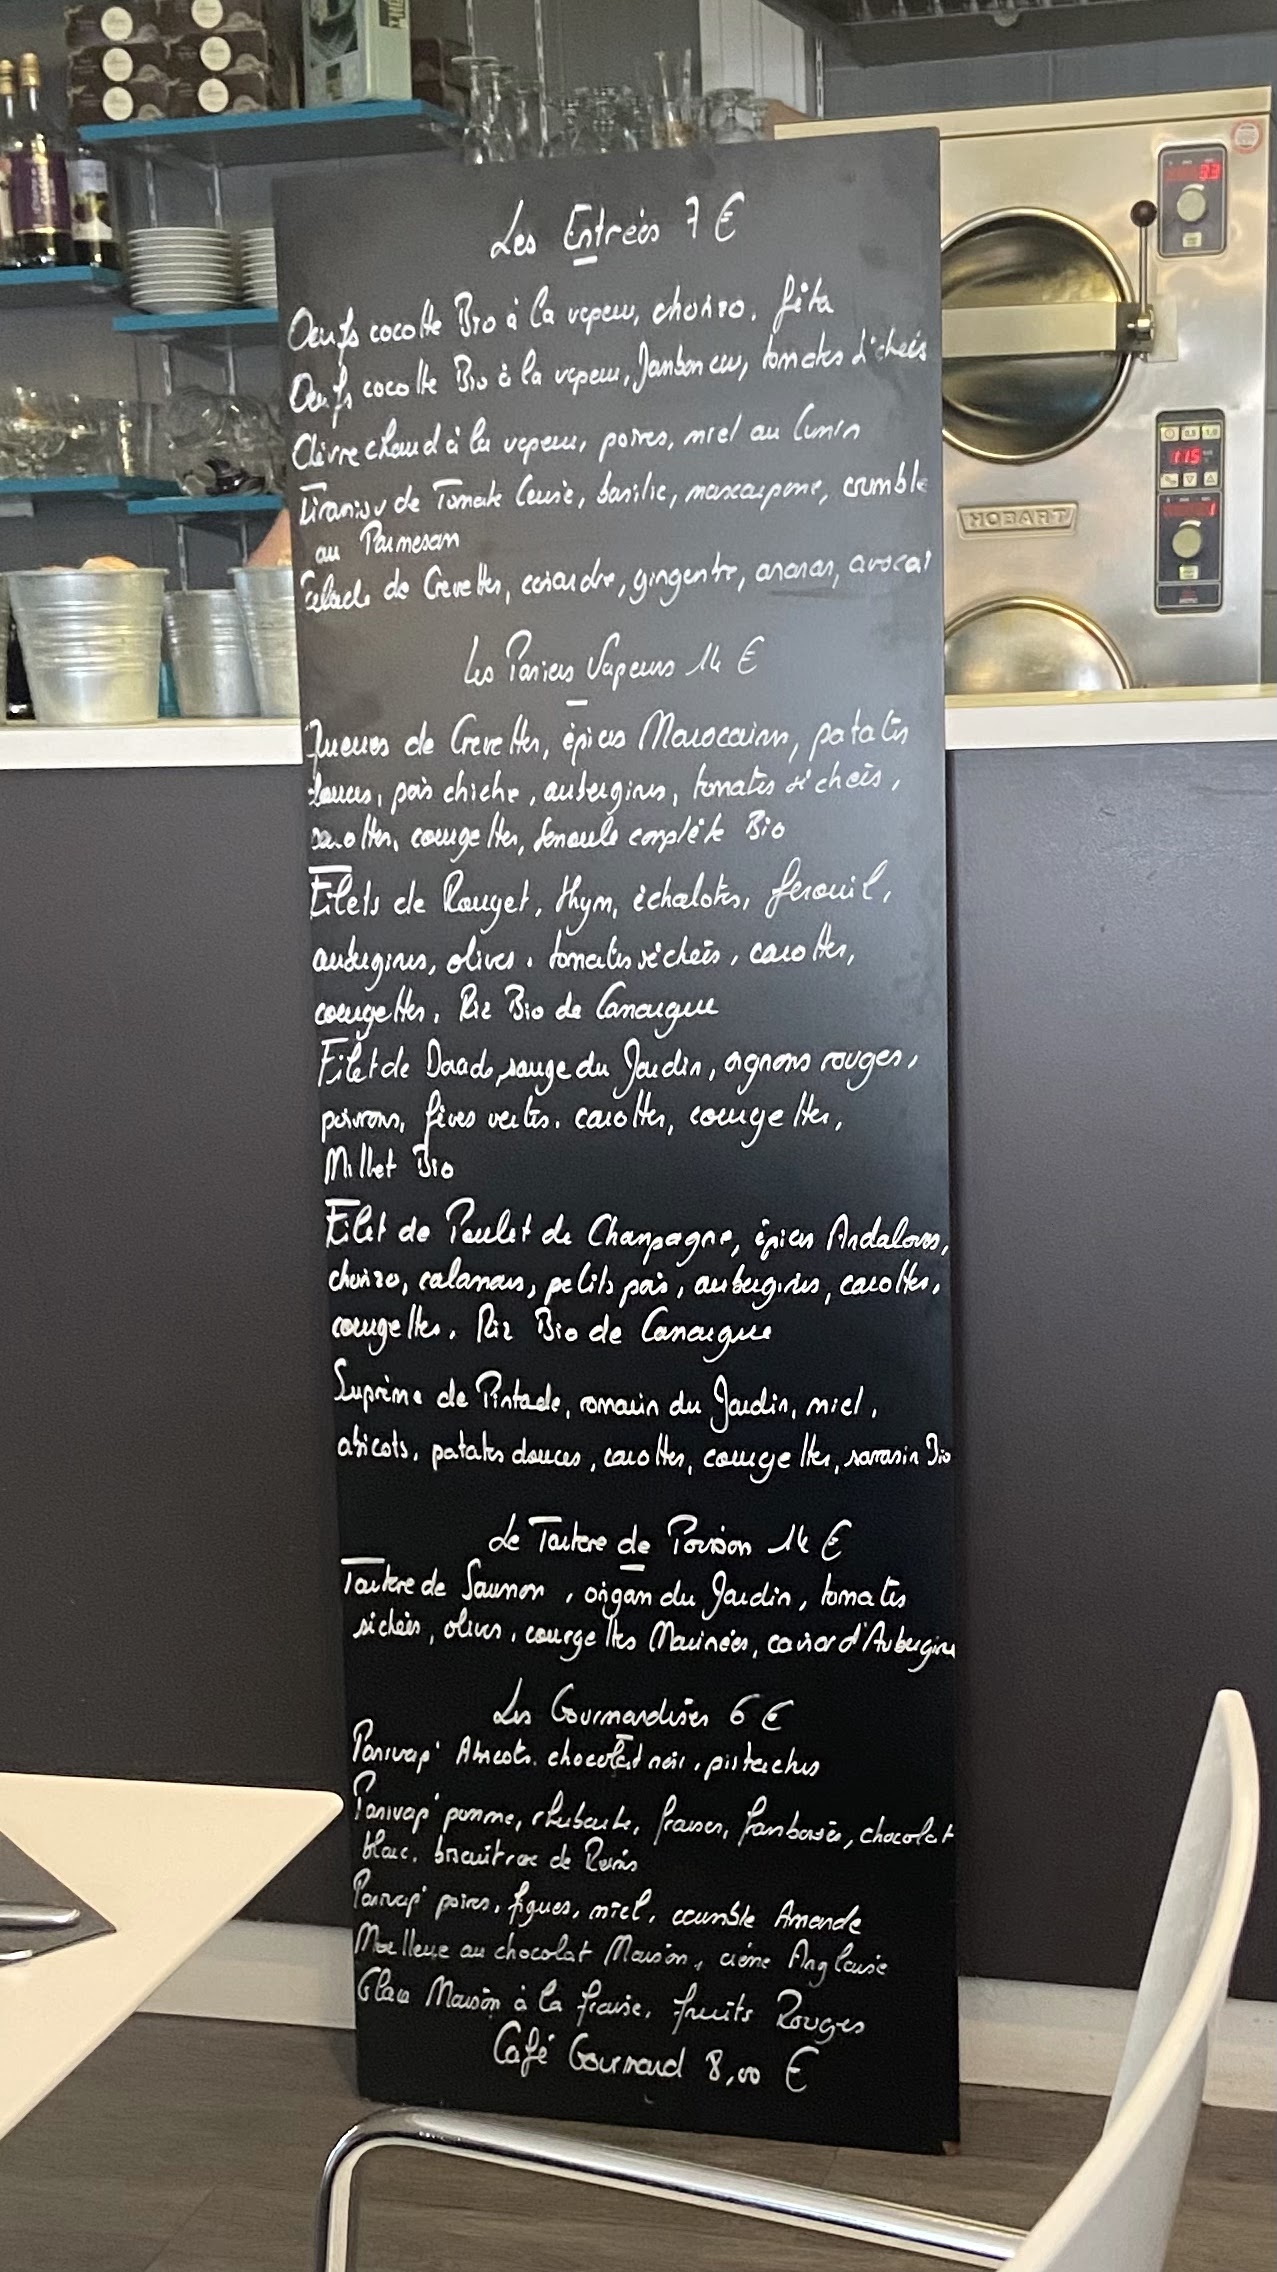 Les Entrées 7 €
Oeufs cocotte Bio à la vapeur, chorizo, féta
Oeufs cocotte Bio à la vapeur, Jambon cru, tomates séchées
Chèvre chaud à la vapeur, poires, miel au Cumin
Tiramisu de Tomate Cerise, basilic, mascarpone, crumble
au Parmesan
Salade de Crevettes, coriandre, gingembre, ananas, avocat
Les Paniers Vapeurs 14 €
Queues de Crevettes, épices Marocaines, patates
douces, pois chiche, aubergines, tomates séchées,
carottes, courgettes, semoule complète Bio
Filets de Rouget, thym, échalotes, fenouil,
aubergines, olives, tomates séchées, carottes,
courgettes, Riz Bio de Camargue
Filet de Daurade, sauge du Jardin, oignons rouges,
poivrons, fèves vertes, carottes, courgettes,
Millet Bio
Filet de Poulet de Champagne, épices Andalouses,
chorizo, calamars, petits pois, aubergines, carottes,
courgettes, Riz Bio de Camargue
Suprême de Pintade, romarin du Jardin, miel,
abricots, patates douces, carottes, courgettes, sarrasin Bio
Le Tartare de Poisson 14 €
Tartare de Saumon, origan du Jardin, tomates
séchées, olives, courgettes Marinées, caviar d'Aubergine
Les Gourmandises 6 €
Panivap' Abricots, chocolat noir, pistaches
Panivap' pomme, rhubarbe, fraises, framboises, chocolat
blanc, biscuit rose de Reims
Panivap' poires, figues, miel, crumble Amande
Moelleux au chocolat Maison, crème Anglaise
Glace Maison à la fraise, fruits Rouges
Café Gourmand 8,00 €
HOBART
115